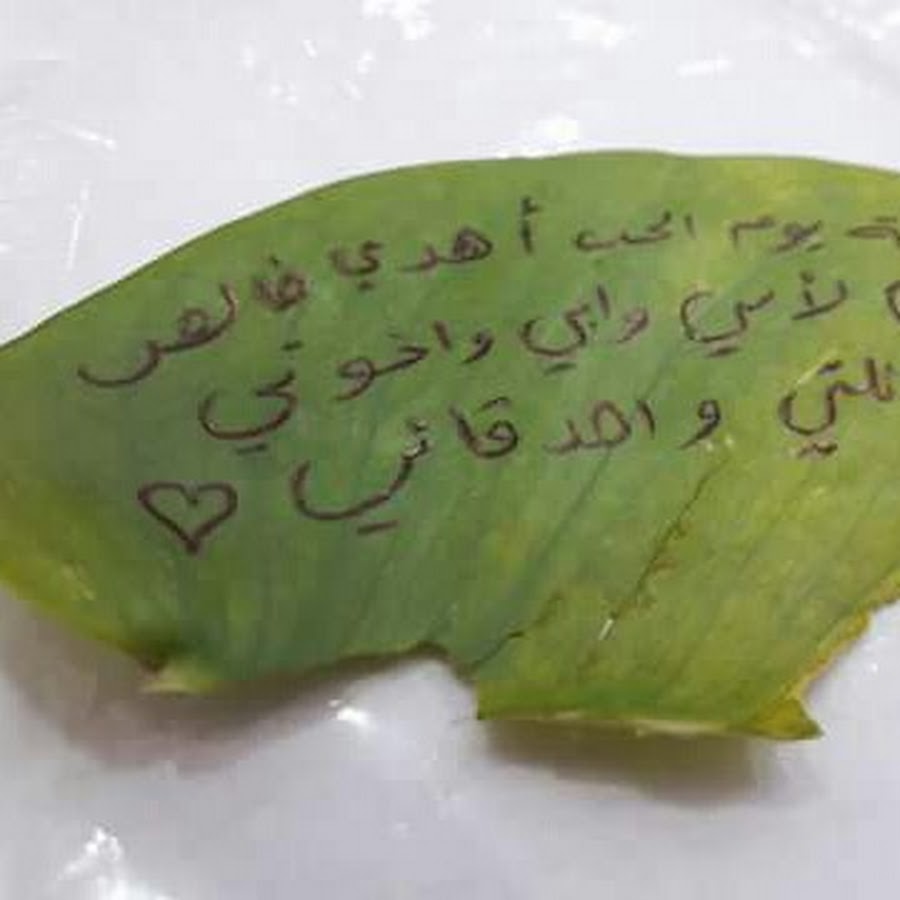 يوم الحب أهدي خالص
لأمي وابي واخوتي
واصدقائي